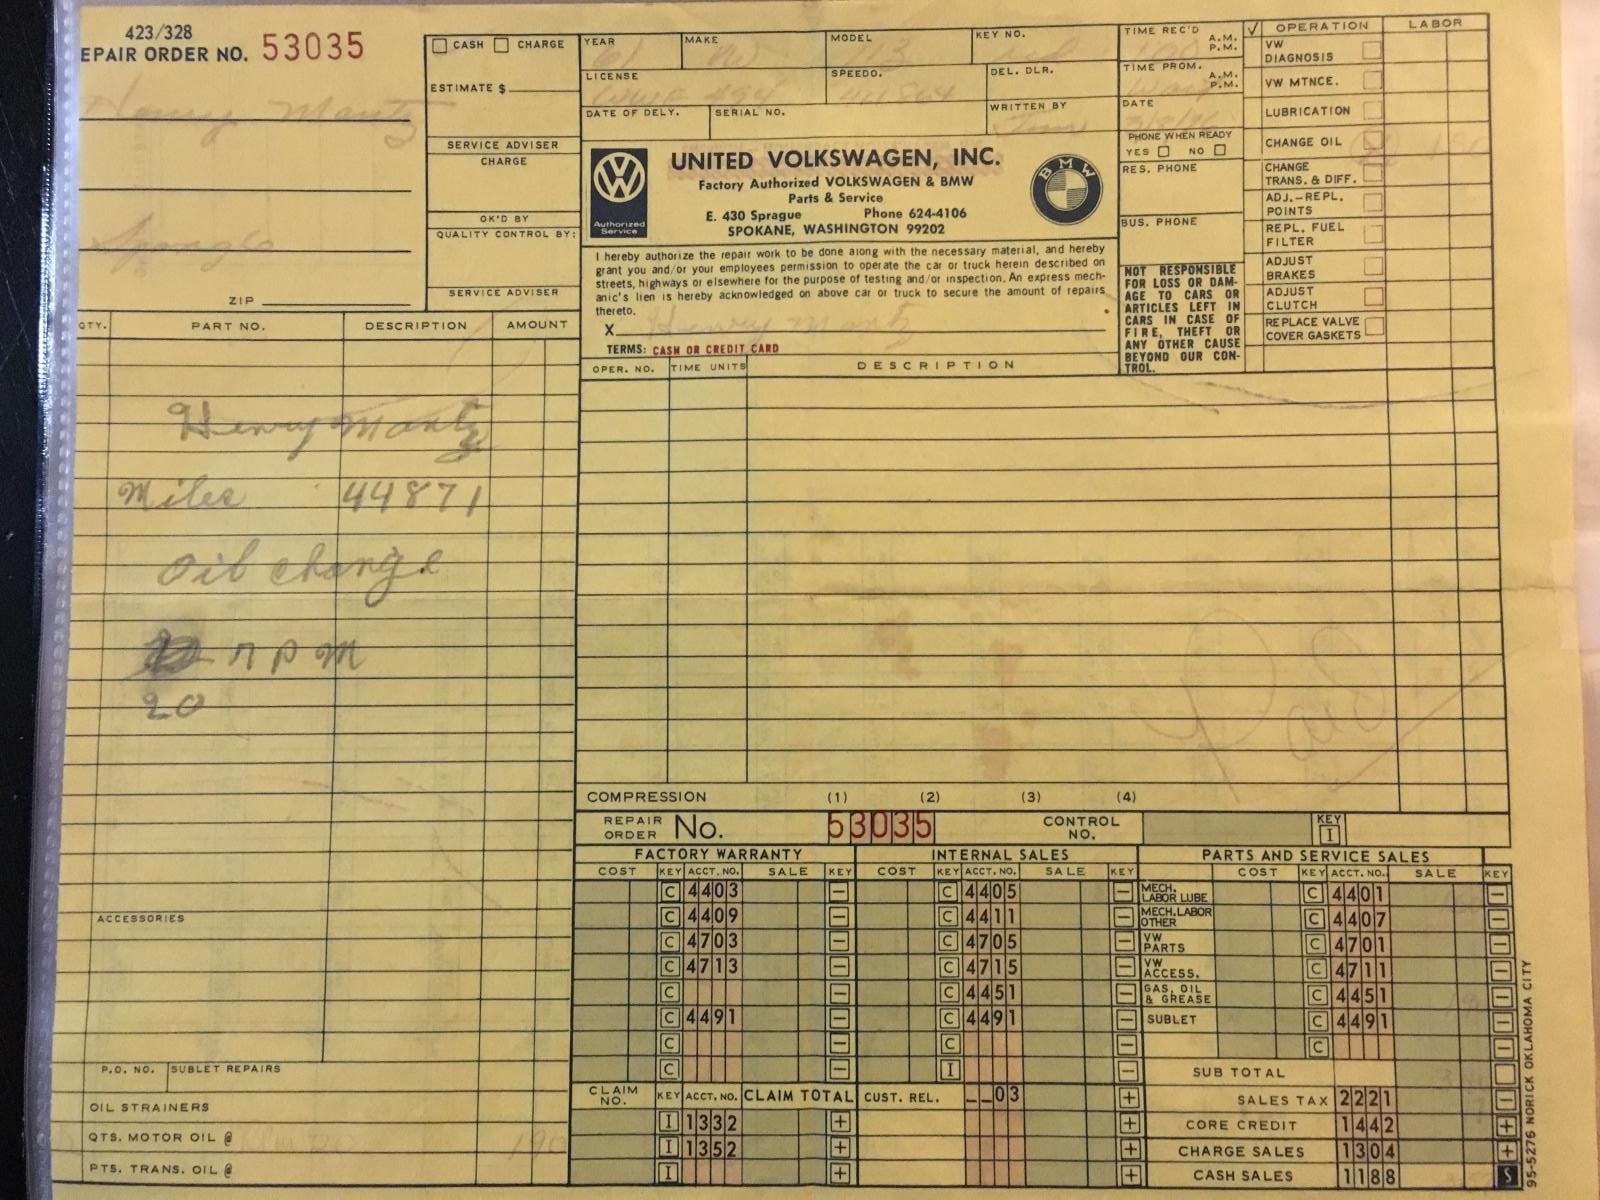 423/328
EPAIR ORDER NO. 53035
Henry Mantz
ZIP
CASH CHARGE
ESTIMATE $
SERVICE ADVISER
CHARGE
OK'D BY
QUALITY CONTROL BY:
SERVICE ADVISER
YEAR 61 MAKE VW MODEL KEY NO.
LICENSE SPEEDO. DEL. DLR.
DATE OF DELY. SERIAL NO. WRITTEN BY
TIME REC'D A.M. P.M.
TIME PROM. A.M. P.M.
DATE
PHONE WHEN READY
YES NO
RES. PHONE
BUS. PHONE
NOT RESPONSIBLE
FOR LOSS OR DAM-
AGE TO CARS OR
ARTICLES LEFT IN
CARS IN CASE OF
FIRE, THEFT OR
ANY OTHER CAUSE
BEYOND OUR CON-
TROL.
✓ OPERATION LABOR
VW DIAGNOSIS
VW MTNCE.
LUBRICATION
CHANGE OIL 150
CHANGE TRANS. & DIFF.
ADJ.-REPL. POINTS
REPL. FUEL FILTER
ADJUST BRAKES
ADJUST CLUTCH
REPLACE VALVE COVER GASKETS
Authorized Service
UNITED VOLKSWAGEN, INC.
Factory Authorized VOLKSWAGEN & BMW
Parts & Service
E. 430 Sprague Phone 624-4106
SPOKANE, WASHINGTON 99202
BMW
I hereby authorize the repair work to be done along with the necessary material, and hereby
grant you and/or your employees permission to operate the car or truck herein described on
streets, highways or elsewhere for the purpose of testing and/or inspection. An express mech-
anic's lien is hereby acknowledged on above car or truck to secure the amount of repairs
thereto.
X Henry Mantz
TERMS: CASH OR CREDIT CARD
QTY. PART NO. DESCRIPTION AMOUNT
OPER. NO. TIME UNITS DESCRIPTION
Henry Mantz
Miles 44871
Oil change
RPM
20
Paid
ACCESSORIES
P.O. NO. SUBLET REPAIRS
OIL STRAINERS
QTS. MOTOR OIL @ 190
PTS. TRANS. OIL @
COMPRESSION (1) (2) (3) (4)
REPAIR ORDER No. 53035 CONTROL NO. KEY I
FACTORY WARRANTY INTERNAL SALES PARTS AND SERVICE SALES
COST KEY ACCT. NO. SALE KEY COST KEY ACCT. NO. SALE KEY COST KEY ACCT. NO. SALE KEY
C 4403 – C 4405 – MECH. LABOR LUBE C 4401 –
C 4409 – C 4411 – MECH. LABOR OTHER C 4407 –
C 4703 – C 4705 – VW PARTS C 4701 –
C 4713 – C 4715 – VW ACCESS. C 4711 –
C – C 4451 – GAS, OIL & GREASE C 4451 –
C 4491 – C 4491 – SUBLET C 4491 –
C – C – C –
C – I – SUB TOTAL
CLAIM NO. KEY ACCT. NO. CLAIM TOTAL CUST. REL. __03 + SALES TAX 2221 –
I 1332 + + CORE CREDIT 1442 +
I 1352 + + CHARGE SALES 1304 +
I + + CASH SALES 1188 S
95-5276 NORICK OKLAHOMA CITY